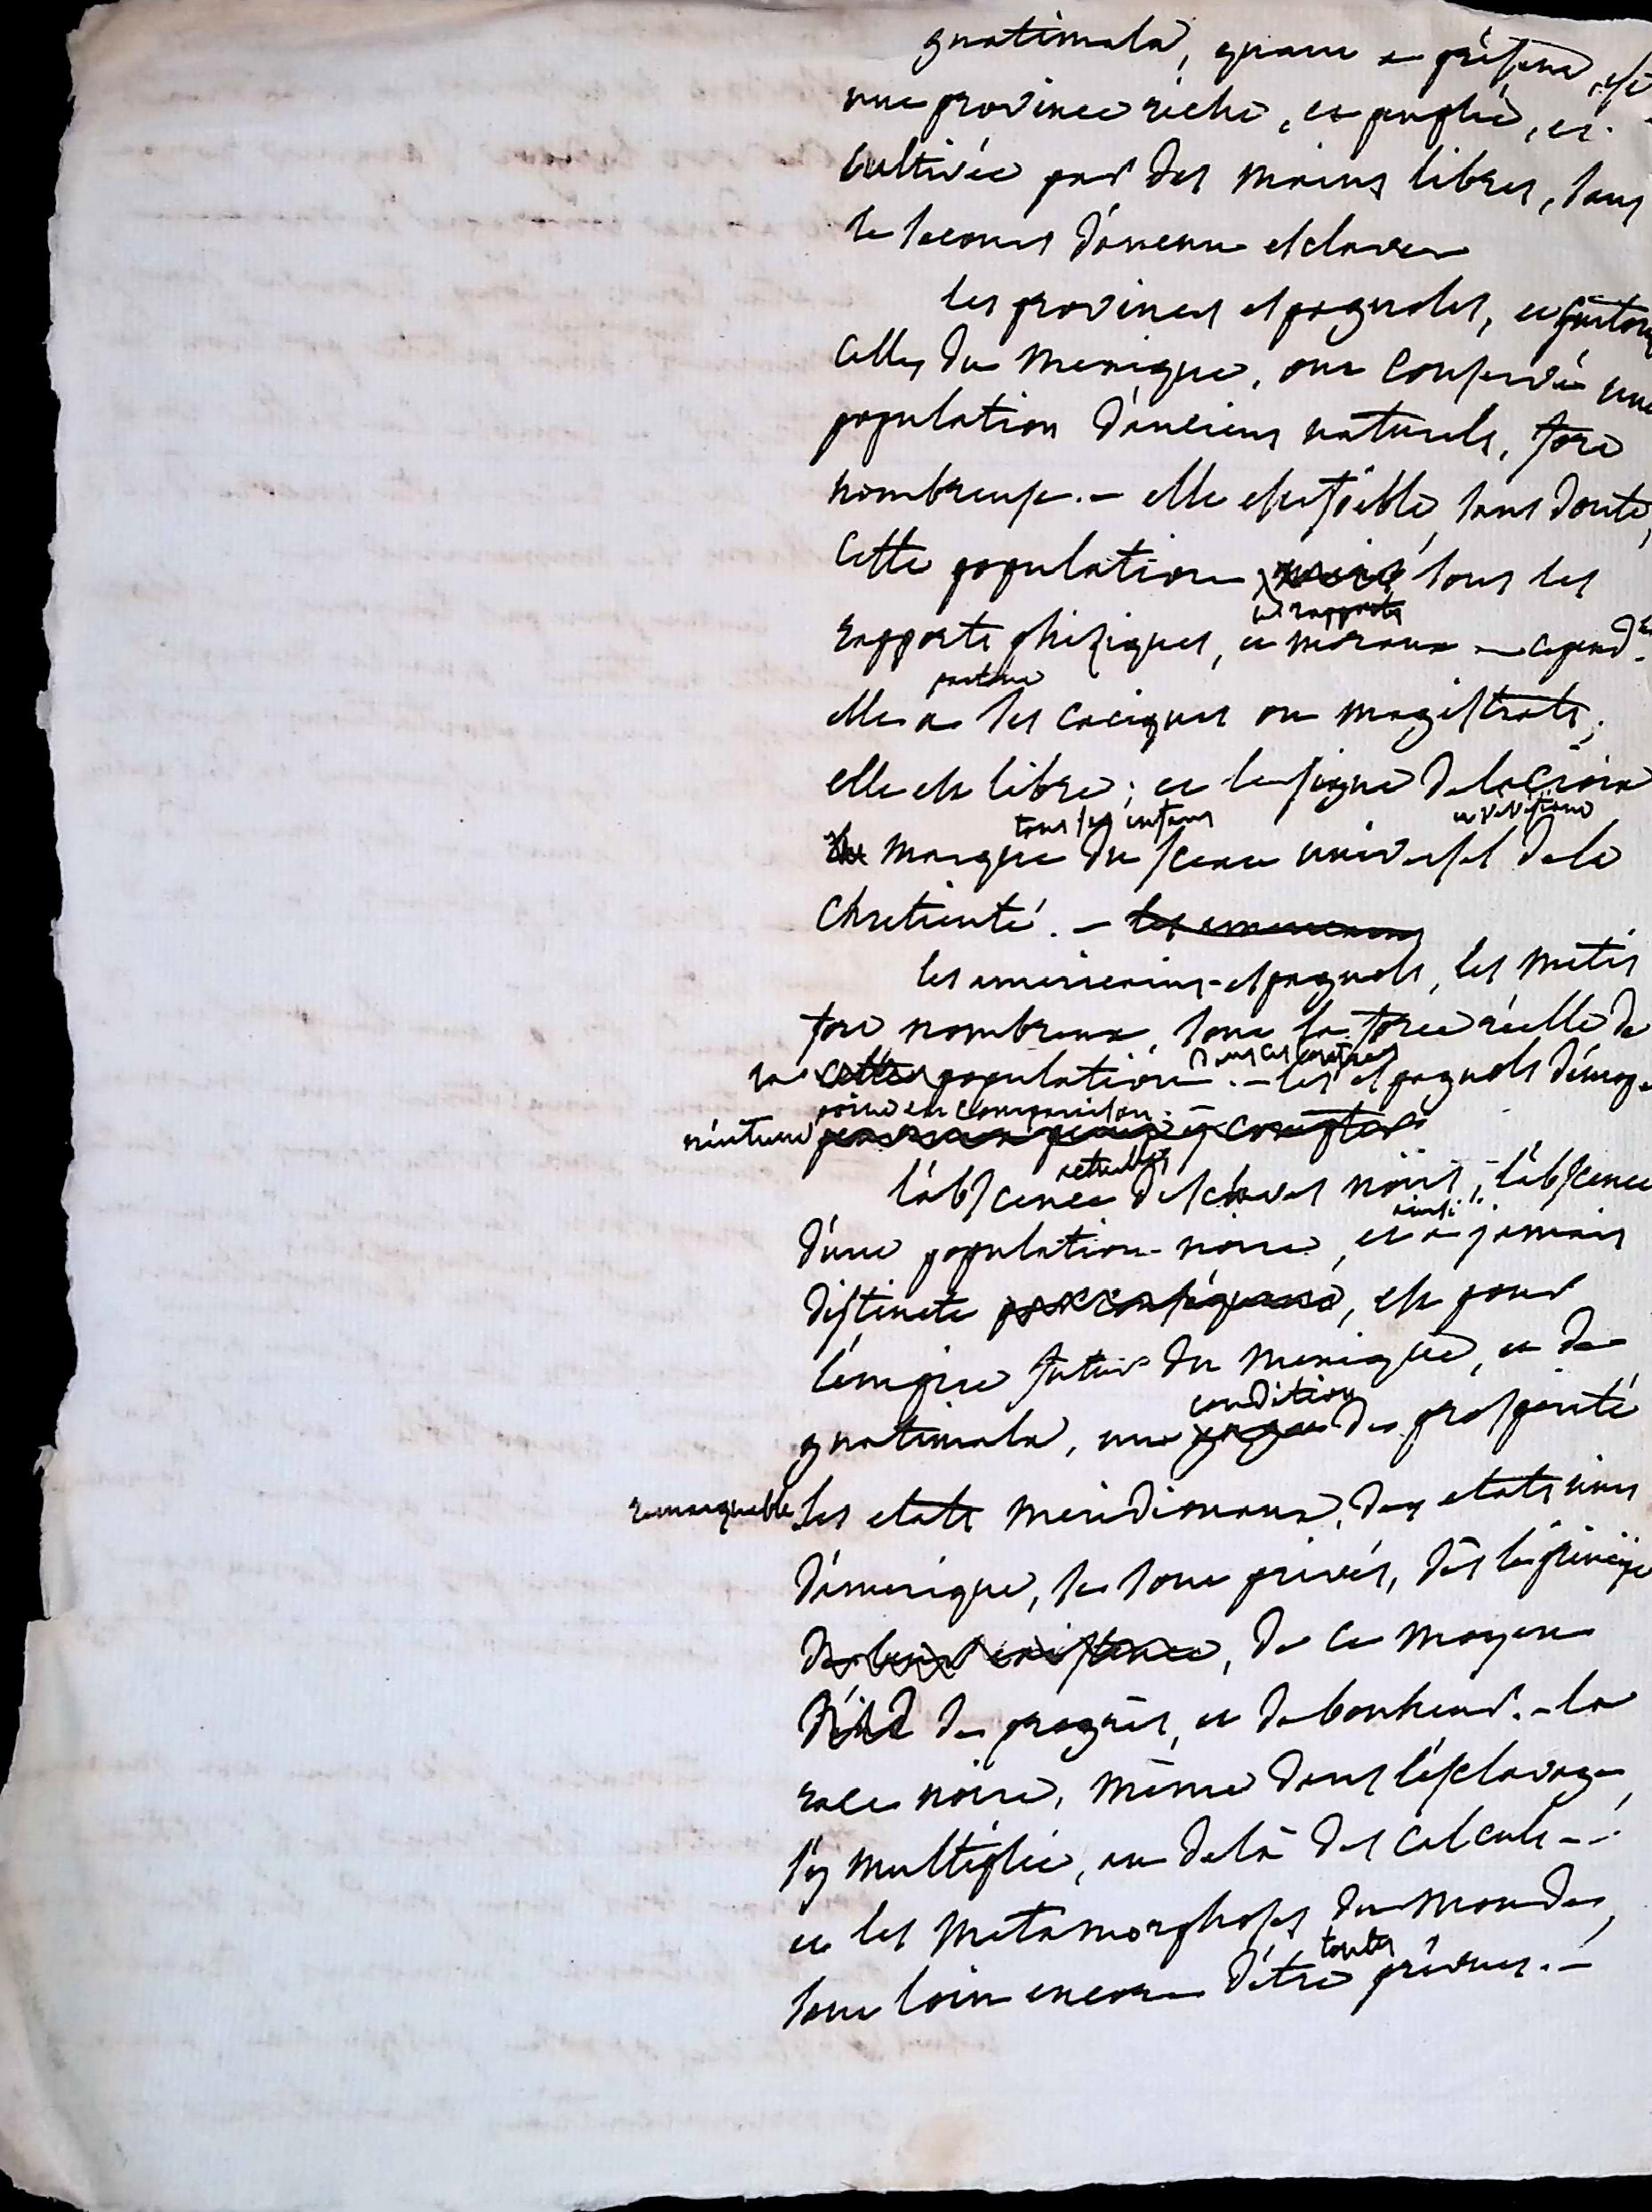 guatimala, quant a présent, est
une province riche, et peuplée, et
cultivée par des mains libres, sans
le secours d'aucun esclave
les provinces espagnoles, et surtout
celles du mexique, ont conservé une
population d'anciens naturels, fort
nombreuse. - elle est foible, sans doute,
cette population sous les
ces rapports
rapports phisiques, et moraux - cepend.t
partout
elle a ses caciques ou magistrats;
elle est libre; et le signe de la croix
tous ses enfans
marque du sceau universel de la
chretienté. - les americains
les americains-espagnols, les metis
fort nombreux, sont la force réelle de
dans ces contrées
la cette population. - les espagnols d'europe
point en comparaison.
n'entrent y compter
actuelle
l'abscence d'esclaves noirs, - l'abscence
ainsi
d'une population noire, et a jamais
distincte par conséquent, est pour
l'empire futur du mexique, et de
condition
guatimala, une gage de prosperité
remarquable. les etats méridionaux, des etats unis
d'amerique, se sont privés, dès le principe
de leur existence, de ce moyen
de progrès, et de bonheur. - la
race noire, même dans l'esclavage,
s'y multiplie, au delà des calculs - .
et les metamorphoses du monde,
toutes
sont loin encore d'être prévues. -